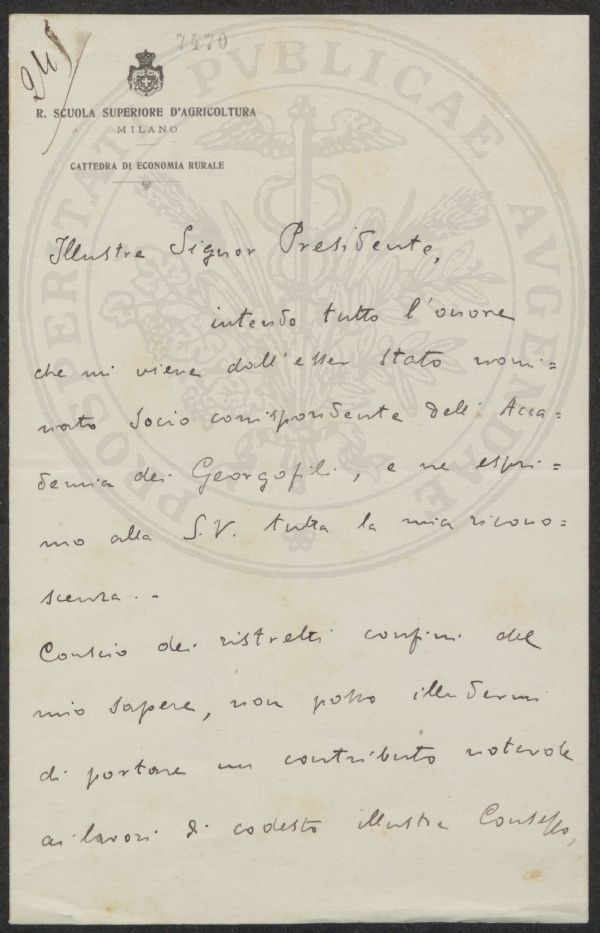 7470
245
R. SCUOLA SUPERIORE D'AGRICOLTURA
MILANO
CATTEDRA DI ECONOMIA RURALE
PROSPERITATI PVBLICAE AVGENDAE
Illustre Signor Presidente,
intendo tutto l'onore
che mi viene dall'esser stato nomi=
nato Socio corrispondente dell'Acca=
demia dei Georgofili, e ne espri=
mo alla S.V. tutta la mia ricono=
scenza. -
Conscio dei ristretti confini del
mio sapere, non posso illudermi
di portare un contributo notevole
ai lavori di codesto illustre Consesso,